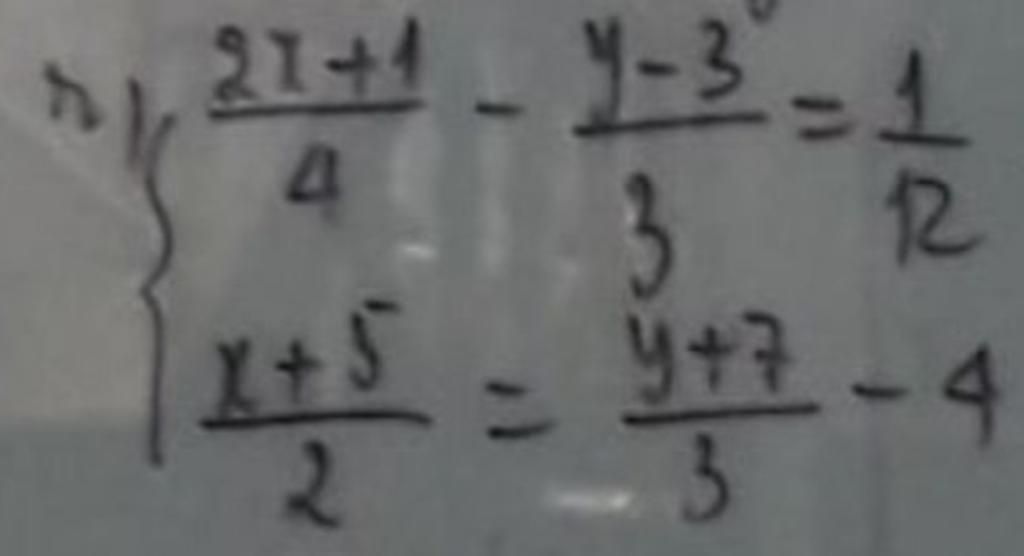 \frac{2x+1}{4} - \frac{y-3}{3} = \frac{1}{12}
\frac{x+5}{2} = \frac{y+7}{3} - 4